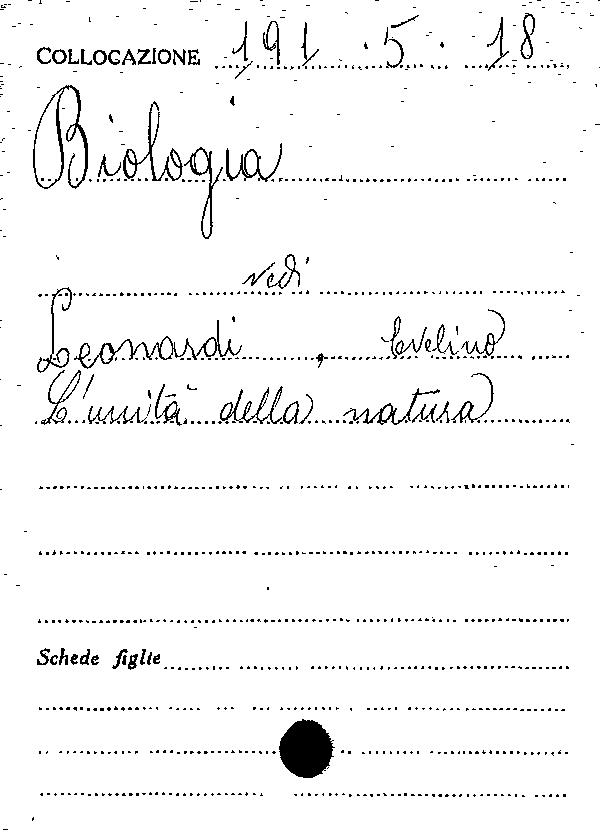 COLLOCAZIONE 191.5.18
Biologia
vedi
Leonardi, Evelino
L'unità della natura
Schede figlie